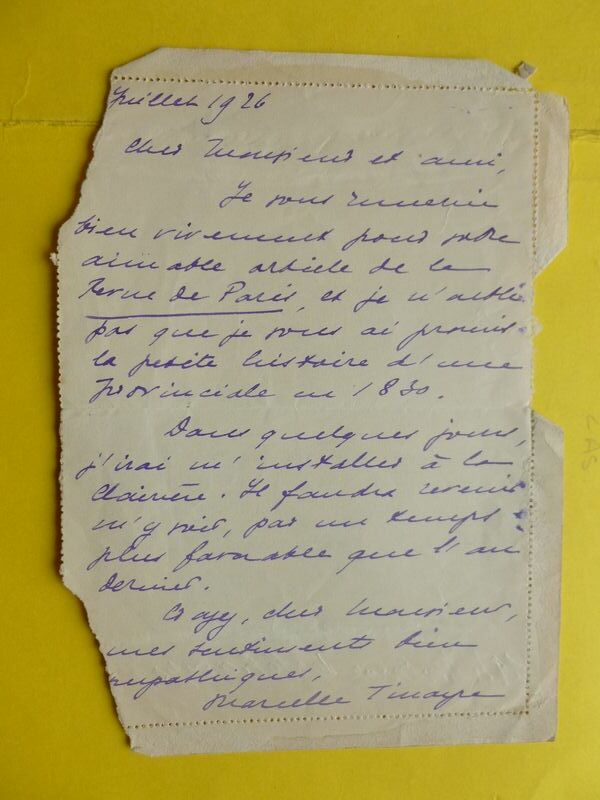 Juillet 1926
Cher Monsieur et ami,
Je vous remercie
bien vivement pour votre
aimable article de la
Revue de Paris, et je n'oublie
pas que je vous ai promis
la petite histoire d'une
provinciale en 1830.
Dans quelques jours,
j'irai m'installer à la
Clairière. Il faudra revenir
m'y voir, par un temps
plus favorable que l'an
dernier.
Croyez, cher Monsieur,
mes sentiments bien
sympathiques,
Marcelle Tinayre
LAS